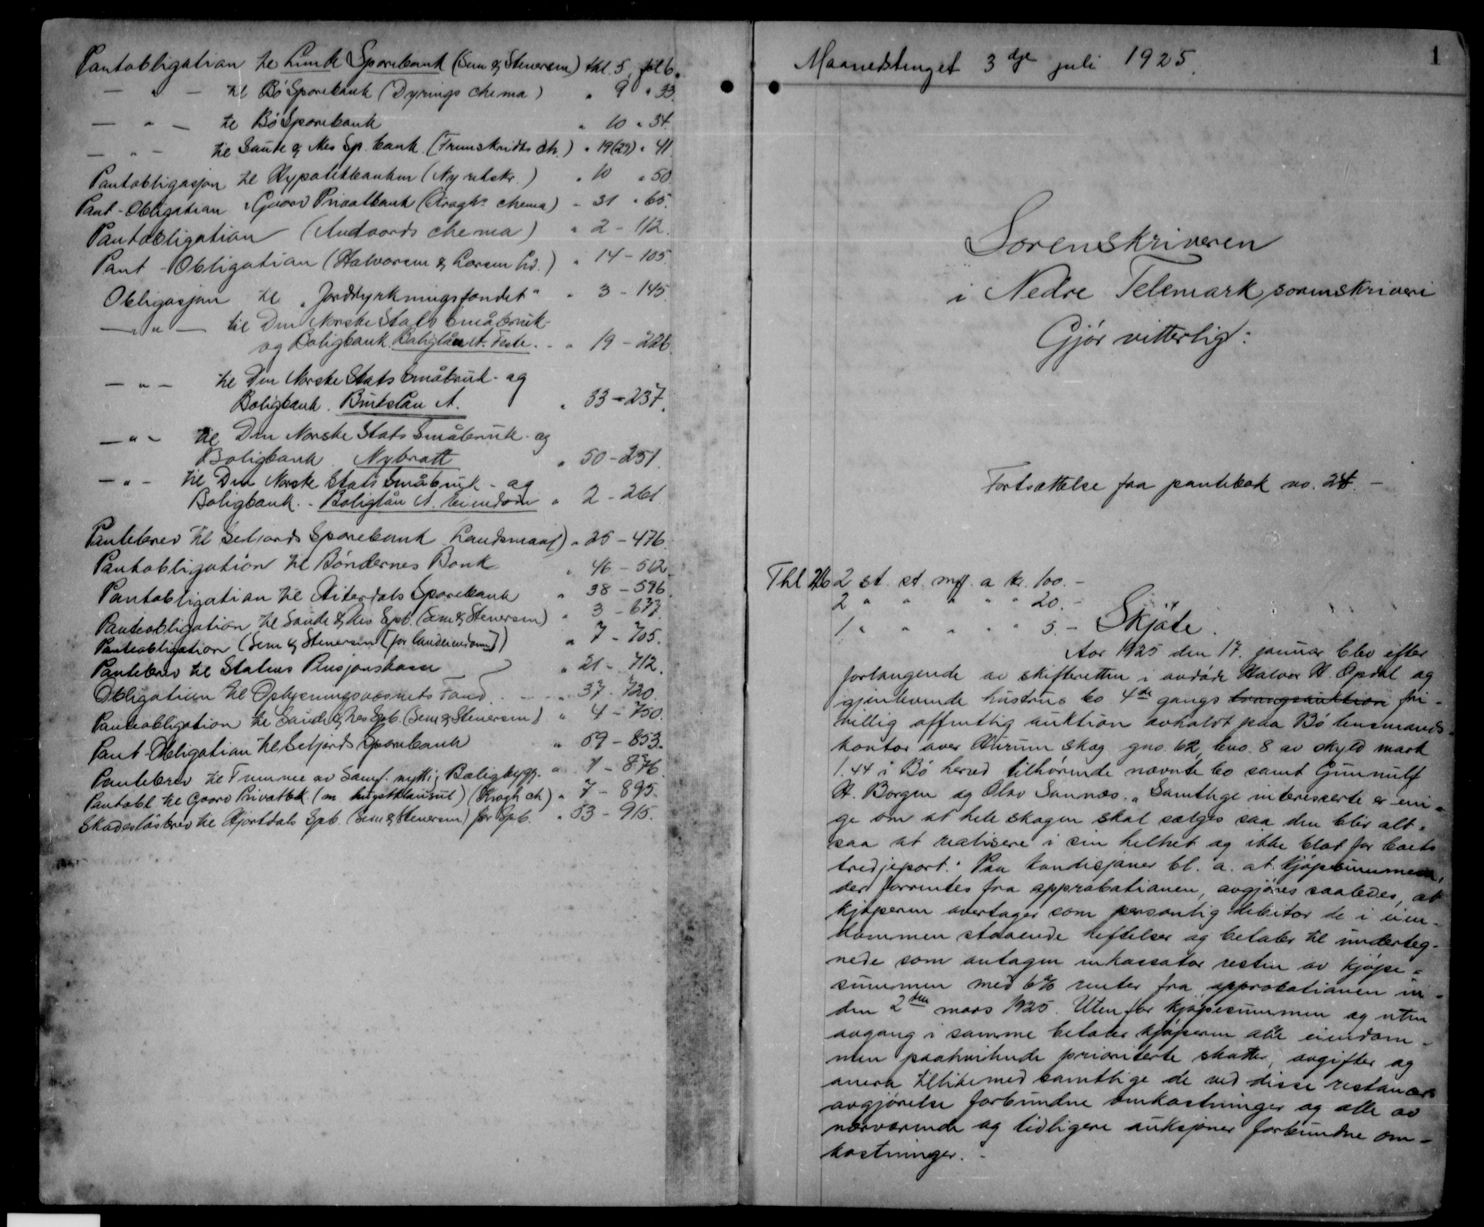 Pantobligation til Lunde Sparebank (Sem & Stenersen) tkl. 5, fol. 6.
— " — til Bø Sparebank (Dyrings chema) " 9 " 33.
— " — til Bø Sparebank " 10 " 34.
— " — til Saude & Nes Sp. bank (Framskridts ch.) " 19(29) " 41.
Pantobligasjon til Hypotekbanken (Ny utskr.) " 10 " 50.
Pant-Obligation " Gaara Privatbank (Kroghs chema) – 31 " 65.
Pantobligation (Andvords chema) " 2 – 112.
Pant-Obligation (Halvorsen & Larsen Ltd.) " 14 – 105.
Obligasjon til "Jorddyrkningsfondet" " 3 – 145
— " — til Den Norske Stats Småbruk-
og Boligbank Boliglån A. Feste. – " 19 – 226.
— " — til Den Norske Stats Småbruk- og
Boligbank. Bruklån A. " 33 – 237.
— " – til Den Norske Stats Småbruk- og
Boligbank Nybrott " 50 – 251.
— " – til Den Norske Stats Småbruk- og
Boligbank. – Boliglån A. Eiendom " 2 – 261
Pantebrev til Seljords Sparebank Landsmaal) " 25 – 476.
Pantobligation til Bøndernes Bank " 46 – 562.
Pantobligation til Hiterdals Sparebank " 38 – 596.
Panteobligation til Saude & Nes Spb. (Sem & Stenersen) " 3 – 677.
Panteobligation (Sem & Stenersen [for landeiendom]) " 7 – 705.
Pantebrev til Statens Pensjonskasse " 21 – 712.
Obligation til Oplysningsvæsenets Fond. " 37 – 720.
Panteobligation til Saude & Nes Spb. (Sem & Stenersen) " 4 – 750.
Pant-Obligation til Seljords Sparebank " 69 – 853.
Pantebrev til Fremme av Samf. nyttig Boligbygg. " 1 – 876.
Pantobl. til Gaara Privatbk (m. kausjonsklausul) (Krogh ch) " 7 – 895.
Skadesløsbrev til Hjartdals Spb. (Sem & Stenersen) for Spb. " 53 – 915.
Maanedstinget 3dje juli 1925.
1
Sorenskriveren
i Nedre Telemark sorenskriveri
Gjør vitterlig:
Fortsættelse fra pantebok no. 24. –
Tbl 26 2 st. st. mrk. a kr. 100. –
2 " " " " " 20. –
1 " " " " " 5. – Skjøte.
Aar 1925 den 17. januar blev efter
forlangende av skifteretten i avdøde Halvor H. Opdal og
gjenlevende hustrus bo 4de gangs tvangsauktion fri-
villig offentlig auktion avholdt paa Bø lensmands-
kontor over skog gno. 62, bno. 8 av skyld mark
1.44 i Bø herred tilhørende nævnte bo samt Gunnulf
H. Borgen og Olav Sannæs. "Samtlige interesserte er eni-
ge om at hele skogen skal sælges saa den blir alt-
saa at realisere i sin helhet og ikke blot for boets
tredjepart." Paa kondisjoner bl. a. at kjøpesummen,
der forrentes fra approbationen, avgjøres saaledes, at
kjøperen overtager som personlig debitor de i eien-
dommen staaende heftelser og betaler til underteg-
nede som antagen inkassator resten av kjøpe-
summen med 6% renter fra approbationen in-
den 2den mars 1925. Uten for kjøpesummen og uten
avgang i samme betaler kjøperen alle eiendom-
men paahvilende prioriterte skatter, avgifter og
anera tillikemed samtlige de ved disse restancers
avgjørelse forbundne omkostninger og alle av
nærværende og tidligere auksjoner forbundne om-
kostninger. –